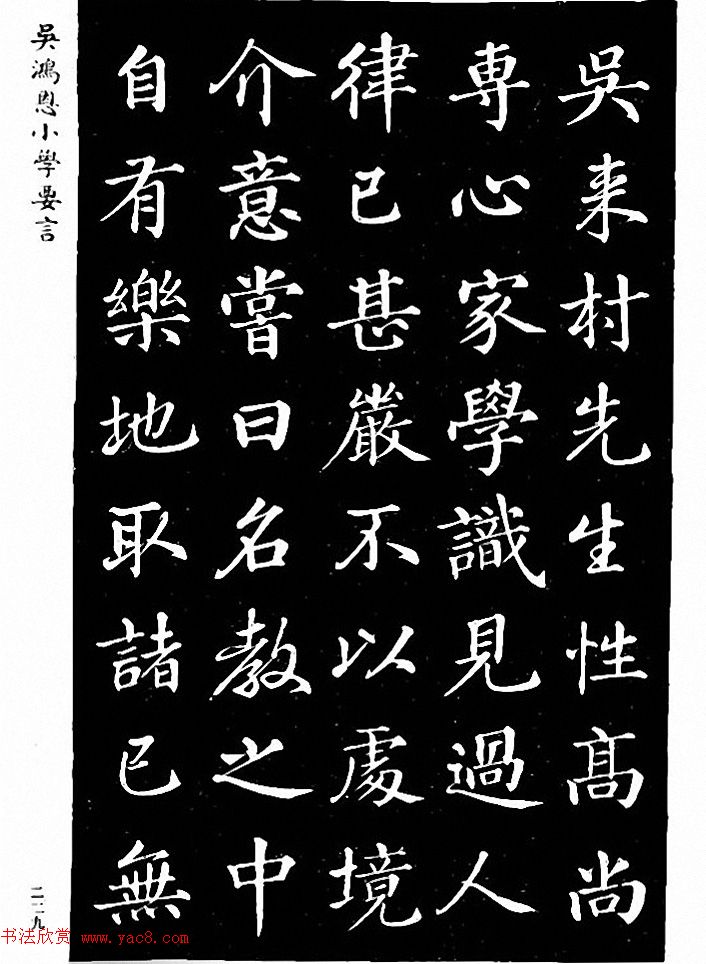 吳来村先生性髙尚
専心家學識見過人
律已甚嚴不以處境
介意嘗曰名教之中
自有樂地取諸已無
吳鴻恩小學要言
二一九
书法欣赏 www.yac8.com